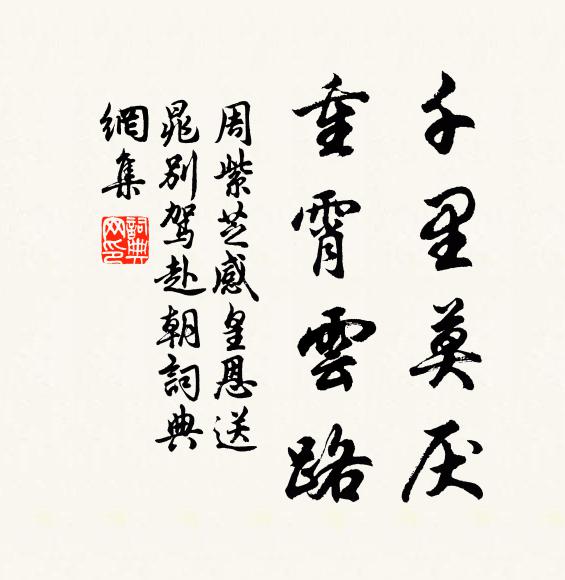 千里莫厌
重霄雲路
周紫芝感皇恩送
晁别驾赴朝詞典
網集
詞典网印